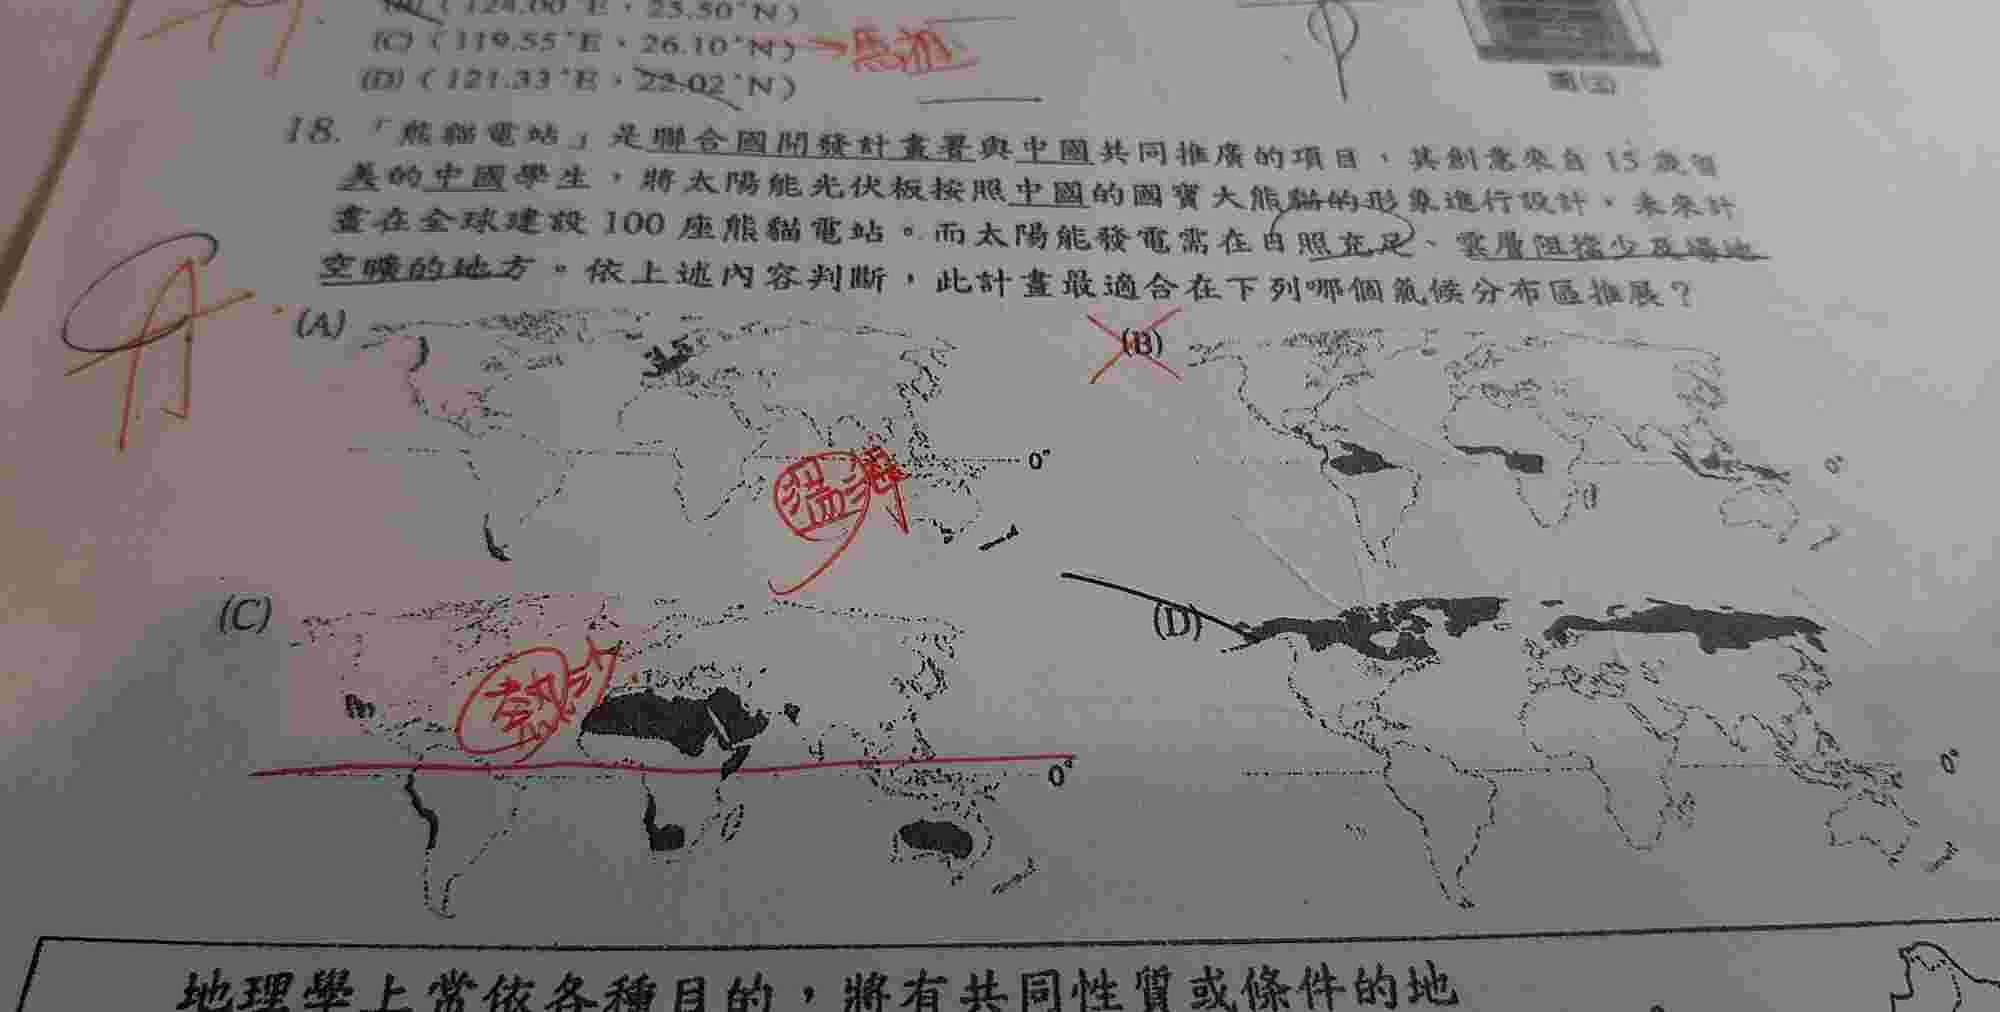 (124.00°E，23.50°N)
(C)（119.55°E，26.10°N）→馬祖
(D)（121.33°E，22.02°N）
18.「熊貓電站」是聯合國開發計畫署與中國共同推廣的項目，其創意來自 15 歲留
美的中國學生，將太陽能光伏板按照中國的國寶大熊貓的形象進行設計，未來計
畫在全球建設 100 座熊貓電站。而太陽能發電需在日照充足、雲層阻擋少及場地
空曠的地方。依上述內容判斷，此計畫最適合在下列哪個氣候分布區推展？
(A)
(B)
0°
溫海
0°
(C)
熱沙
0°
(D)
0°
地理學上常依各種目的，將有共同性質或條件的地